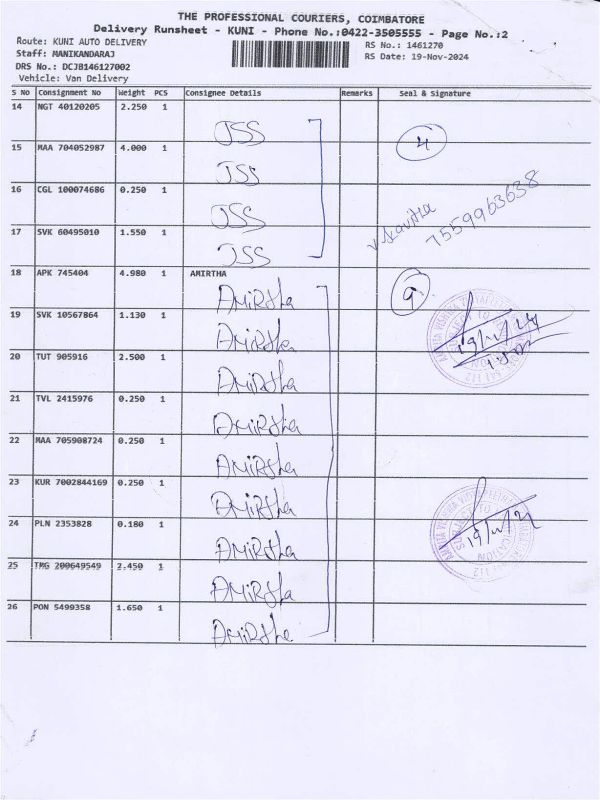 THE PROFESSIONAL COURIERS, COIMBATORE
Delivery Runsheet - KUNI - Phone No.:0422-3505555 - Page No.:2
Route: KUNI AUTO DELIVERY
Staff: MANIKANDARAJ
DRS No.: DCJB146127002
Vehicle: Van Delivery
RS No.: 1461270
RS Date: 19-Nov-2024
S No Consignment No Weight PCS Consignee Details Remarks Seal & Signature
14 NGT 40120205 2.250 1 JSS
15 MAA 704052987 4.000 1 JSS
4
16 CGL 100074686 0.250 1 JSS
17 SVK 60495010 1.550 1 JSS
Kavitha
7559963638
18 APK 745404 4.980 1 AMIRTHA
AMIRtha
9
19 SVK 10567864 1.130 1 AMIRtha
19/11/24
20 TUT 905916 2.500 1 AMIRtha
21 TVL 2415976 0.250 1 AMIRtha
22 MAA 705908724 0.250 1 AMIRtha
23 KUR 7002844169 0.250 1 AMIRtha
24 PLN 2353828 0.180 1 AMIRtha
19/11/24
25 TMG 200649549 2.450 1 AMIRtha
26 PON 5499358 1.650 1 AMIRtha